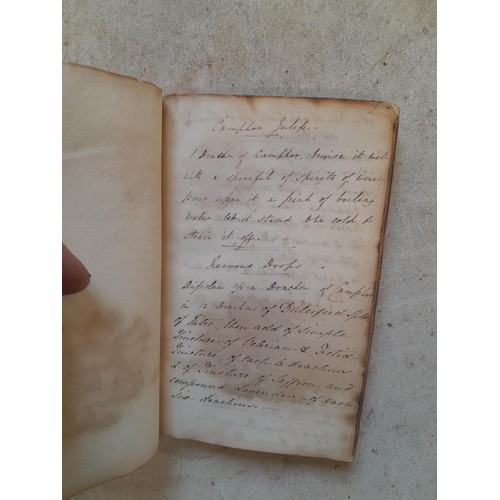 Camphor Julep.-
1 Drachm of Camphor, bruise it well
with a spoonful of spirits of wine,
pour upon it a pint of boiling
water let it stand till cold &
strain it off.
Nervous Drops.
Dissolve a Drachm of Camphor
in 12 drachms of Dulcified Spts
of Nitre, then add of Simple
Tincture of Valerian & Fetid
Tincture, of each 6 drachms
& of Tincture of Saffron and
compound Lavender of each
Six drachms.